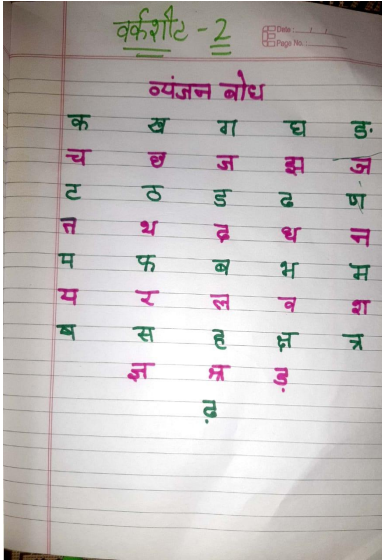 वर्कशीट - 2
Date :
Page No. :
व्यंजन बोध
क ख ग घ ङ
च छ ज झ ञ
ट ठ ड ढ ण
त थ द ध न
प फ ब भ म
य र ल व श
ष स ह क्ष त्र
ज्ञ श्र ड़
ढ़